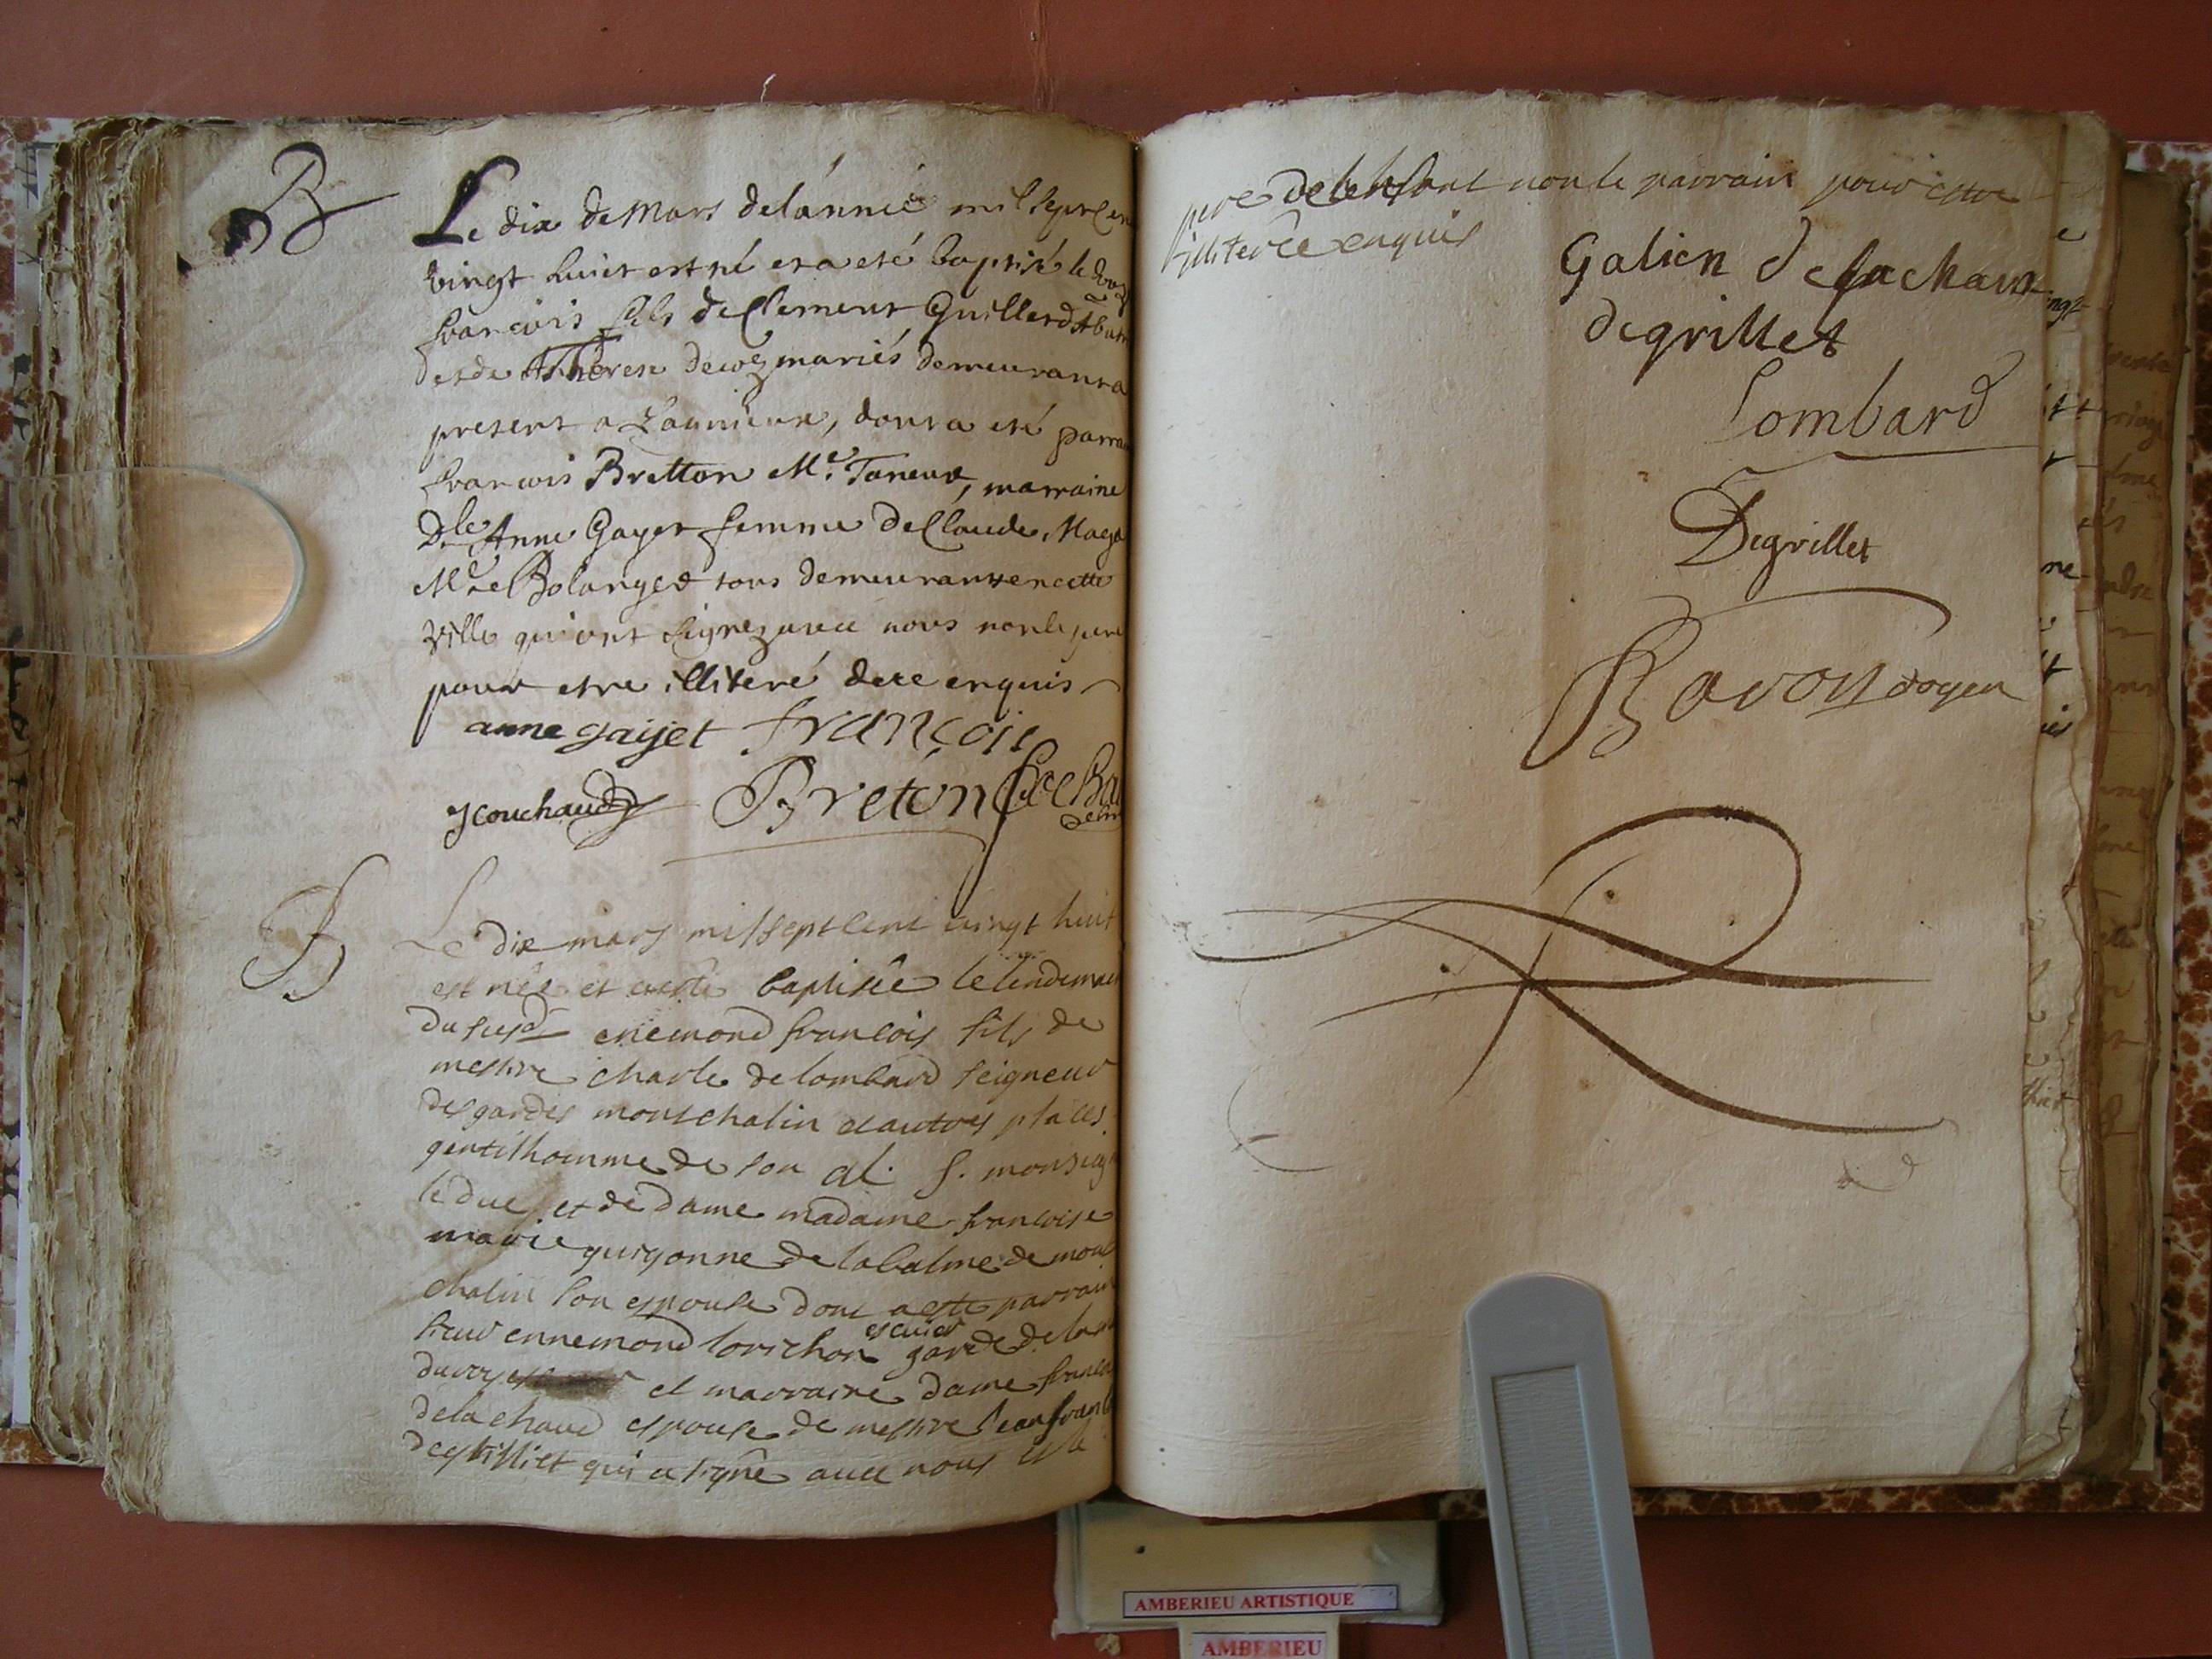 B
Le dix de Mars de lánnée mil sept cen
vingt huict est né et a eté baptisé le
françois fils de Clement Guillerd
et de Therese decoz mariés demeurants a
present a Lagnieux, dont a eté parrai
francois Bretton Me. Taneur, marraine
Dle Anne Gayet femme de Claude
Me Bolanger tous demeurants en cette
ville qui ont signez avec nous non le pere
pour etre illiteré de ce enquis
anne gaijet françois
Jcouchaud Breton
B
Le dix mars mil sept cent vingt huit
est née et a esté baptisée le lendemain
du susd enemond francois fils de
messire charle de lombard seigneur
des gardes montchalin et autres places
gentilhomme de son al. s. monseig
le duc et de dame madame francoise
marie guigonne de la balme de mont
chalin son espouse dont a esté parrain
sieur ennemond lorichon escuier garde de la
du roy et marraine dame franco
de la chaud espouse de messire Jean fran
qui a signé avec nous et le
pere de lenfant non le parrain pour estre
illiterée enquis
Galien de lachaux
degrillet
Lombard
Degrillet
Bavon doyen
AMBERIEU ARTISTIQUE
AMBERIEU